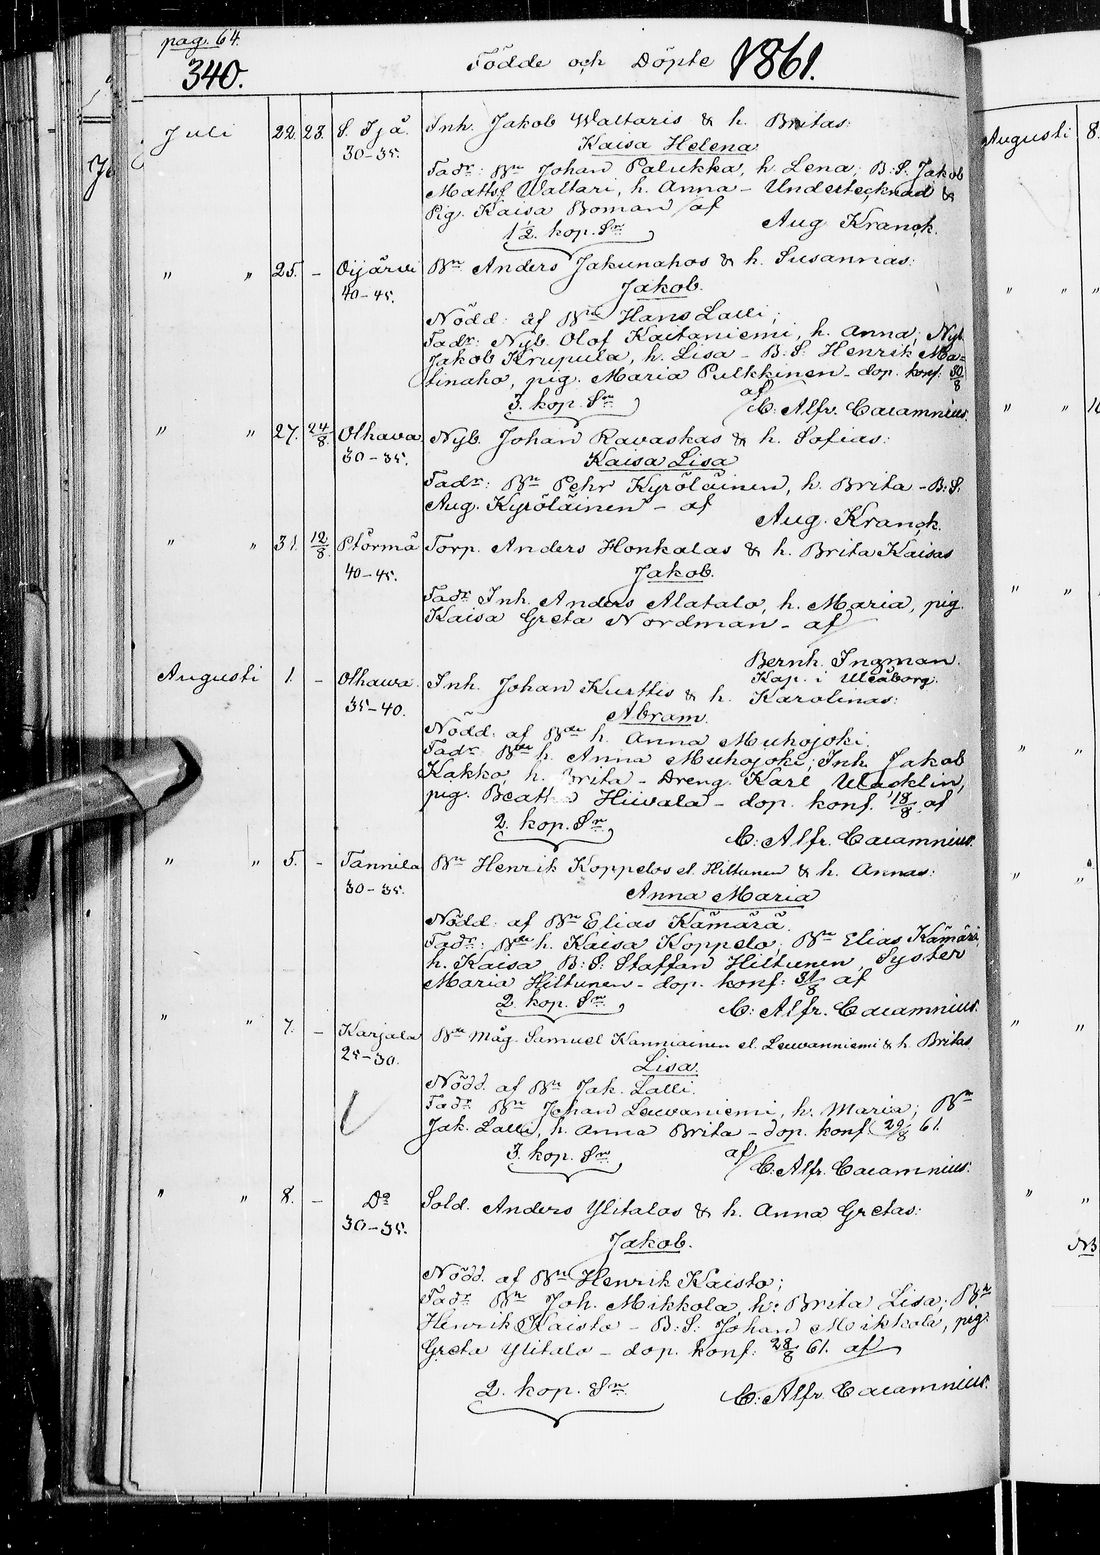 pag. 64.
340. Födde och Döpte 1861.
Juli 22. 23. S. Ijå. Inh. Jakob Waltaris & h. Britas:
30–35. Kaisa Helena
Fadr: Bn Johan Palukka, h. Lena; B. S. Jakob
Mattsf Waltari, h. Anna – Undertecknad &
Pig. Kaisa Boman / af
1½. kop. Sr Aug Kranck.
" " 25. – Oijärvi Bn Anders Jakunahos & h. Susannas:
40–45. Jakob.
Nödd. af Bn Hans Lalli;
Fadr: Nyb. Olof Kaitaniemi, h. Anna; Nyb.
Jakob Krupula, h. Lisa – B. S. Henrik Ma=
tinaho, pig. Maria Pulkkinen – dop. konf: 30/8
3. kop. Sr af C. Alfr. Cajamnius.
" " 27. 24/8. Olhava Nyb. Johan Ravaskas & h. Sofias:
30–35. Kaisa Lisa
Fadr: Bn Pehr Kyröläinen, h. Brita – B. S.
Aug. Kyröläinen – af
Aug. Kranck.
" " 31. 12/8. Ptörmä Torp. Anders Honkalas & h. Brita Kaisas
40–45. Jakob.
Fadr Inh. Anders Alatalo, h. Maria, pig.
Kaisa Greta Nordman – af
Bernh. Ingman.
Kap. i Uleåborg.
Augusti 1. – Olhawa. Inh. Johan Kurttis & h. Karolinas:
35–40. Abram.
Nödd. af Bde h. Anna Muhojoki;
Fadr: Bde h. Anna Muhojoki; Inh. Jakob
Kakko, h. Brita – Dreng. Karl Wacklin,
pig. Beatha Hiivala – dop. konf. 18/8 af
2. kop. Sr. C. Alfr. Cajamnius.
" " 5. – Tannila Bn Henrik Koppelos el. Hiltunen & h. Annas:
30–35. Anna Maria
Nödd. af Bn Elias Kämärä.
Fadr: Bde h. Kaisa Koppelo; Bn Elias Kämärä
h. Kaisa, B. S. Staffan Hiltunen, Syster
Maria Hiltunen – dop. konf: 31/8 af
2. kop. Sr. C. Alfr. Cajamnius.
" " 7. – Karjala Bn Måg. Samuel Kanniainen el. Leuvanniemi & h. Britas
25–30. Lisa.
Nödd. af Bn Jak. Lalli.
Fadr Bn Johan Leuvaniemi, h. Maria; Bn
Jak. Lalli, h. Anna Brita – dop. konf. 29/8 61.
3. kop. Sr. af C. Alfr. Cajamnius.
" " 8. – Do Sold. Anders Ylitalos & h. Anna Gretas:
30–35. Jakob.
Nödd. af Bn Henrik Kaisto;
Fadr Bn Joh. Mikkola, h: Brita Lisa; Bn
Henrik Kaisto – B. S. Johan Mikkola, pig.
Greta Ylitalo – dop. konf: 28/8 61. af
2. kop. Sr. C. Alfr. Cajamnius.
Augusti 8.